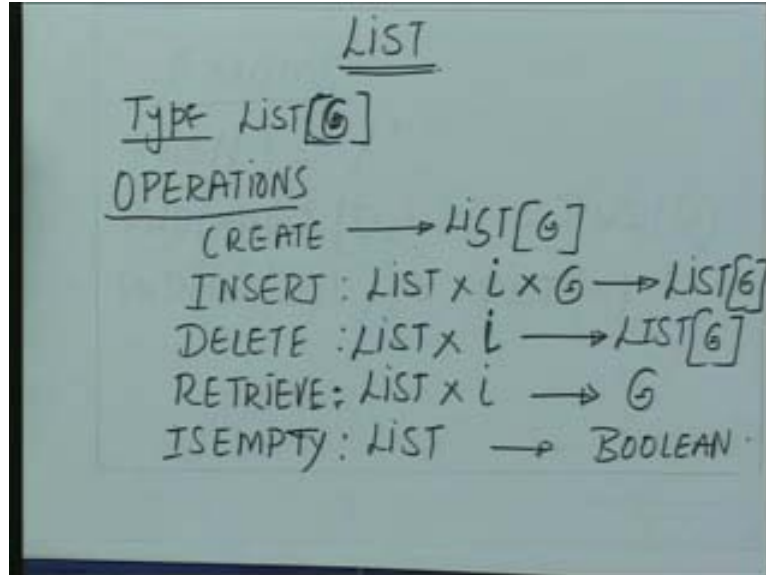 LIST
TYPE LIST[G]
OPERATIONS
CREATE → LIST[G]
INSERT : LIST x i x G → LIST[G]
DELETE : LIST x i → LIST[G]
RETRIEVE : LIST x i → G
ISEMPTY : LIST → BOOLEAN.